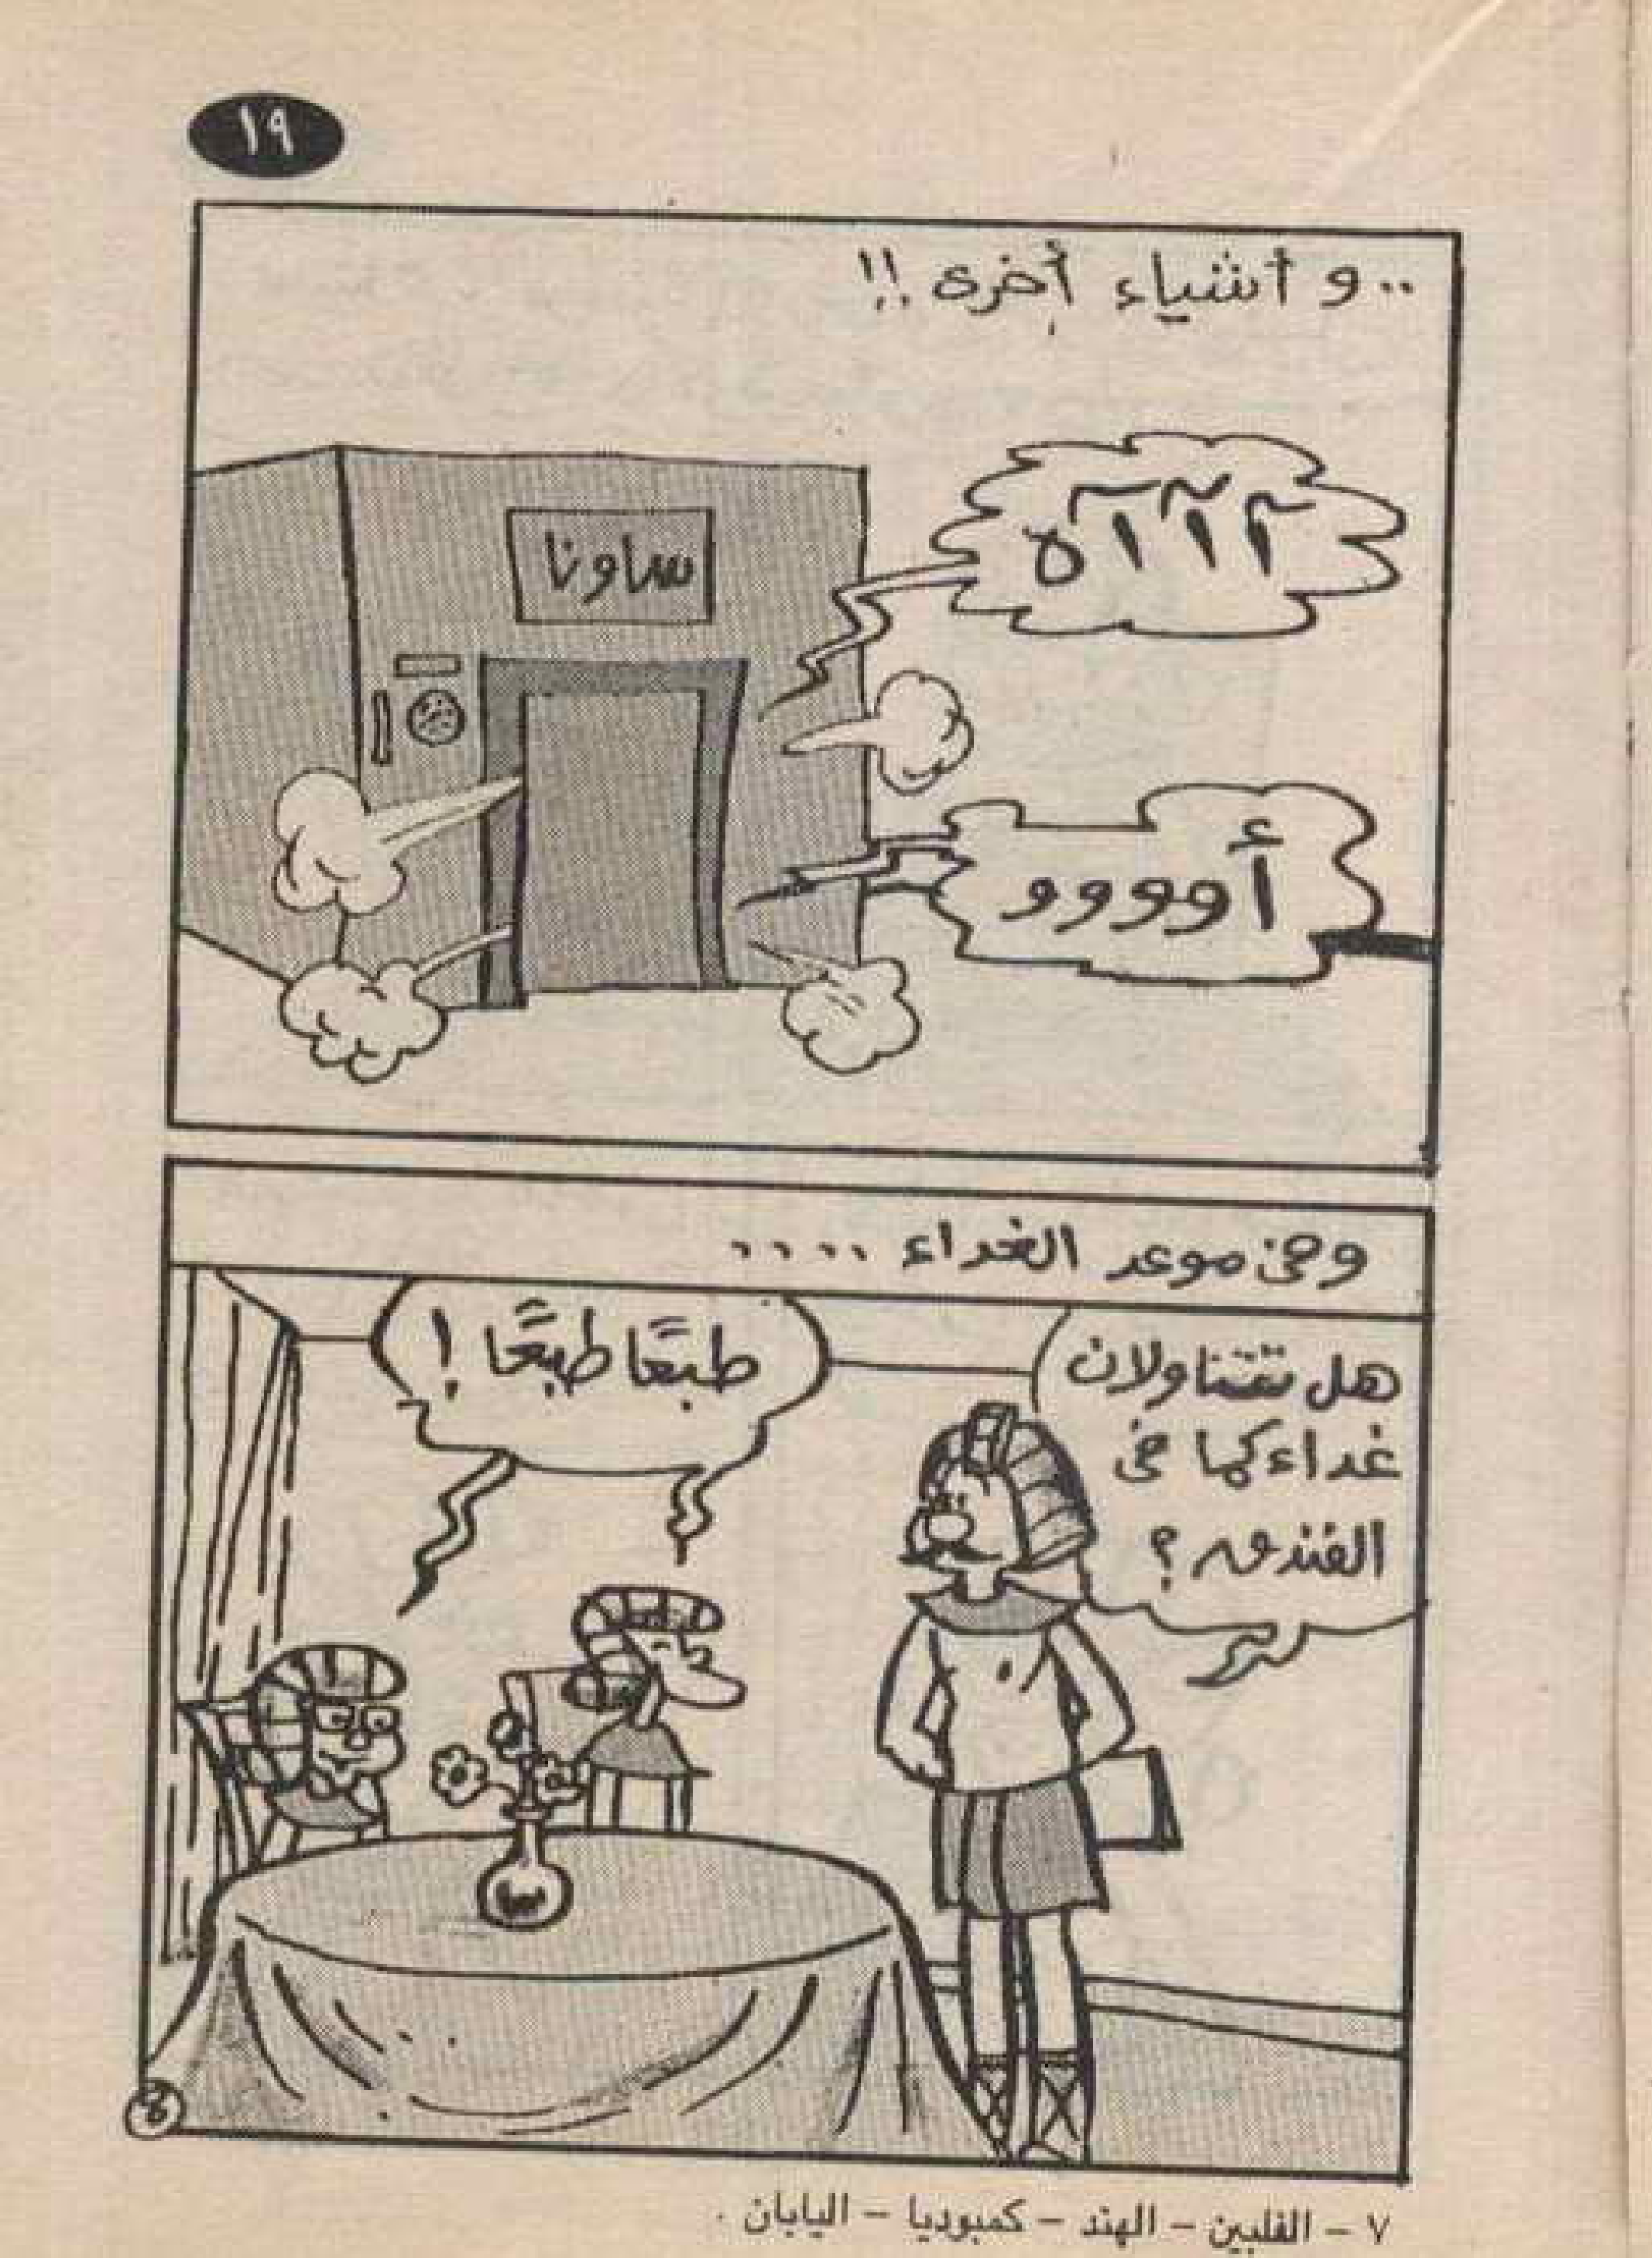 ١٩
..و أشياء أخرى !!
آآآه
ساونا
أوووو
وفى موعد الغداء ....
هل تتناولان
غداء كما فى
الفندق ؟
طبعًا طبعًا !
٧ – الفلبين – الهند – كمبوديا – اليابان .